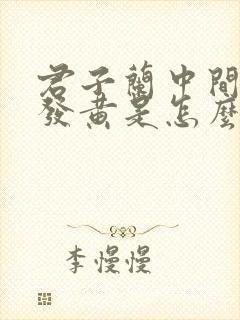 君子蘭中間
發黃是怎麼
李慢慢